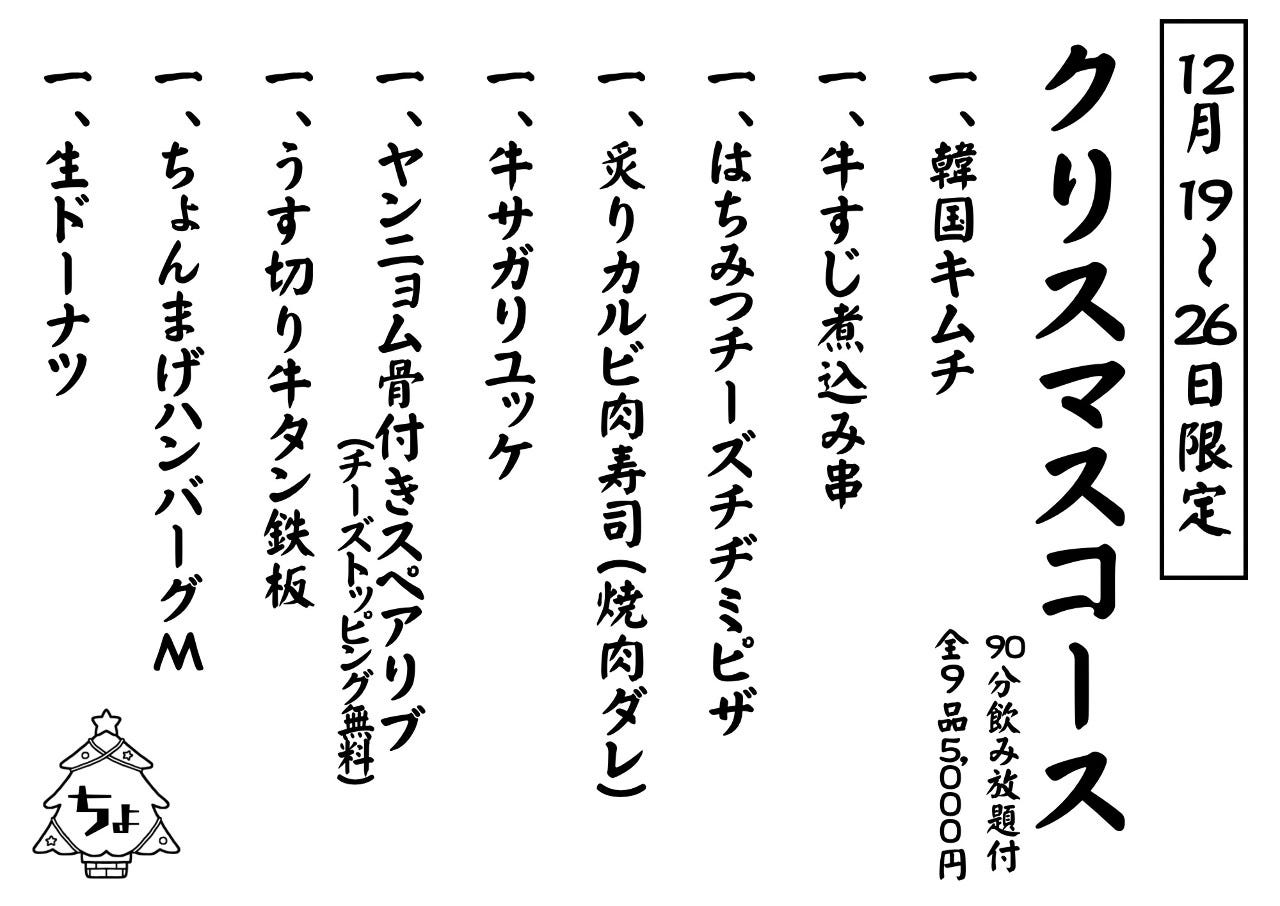 12月19〜26日限定
クリスマスコース
90分飲み放題付
全9品5,000円
一、韓国キムチ
一、牛すじ煮込み串
一、はちみつチーズチヂミピザ
一、炙りカルビ肉寿司(焼肉ダレ)
一、牛サガリユッケ
一、ヤンニョム骨付きスペアリブ
(チーズトッピング無料)
一、うす切り牛タン鉄板
一、ちょんまげハンバーグM
一、生ドーナツ
ちょ